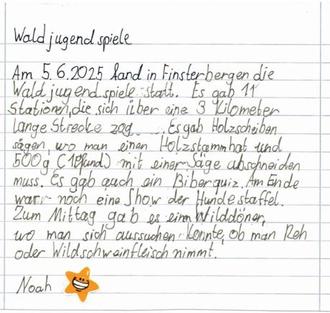 Waldjugendspiele
Am 5.6.2025 fand in Finsterbergen die
Waldjugendspiele statt. Es gab 11
Stationen, die sich über eine 3 Kilometer
lange Strecke zog. Es gab Holzscheiben
sägen, wo man einen Holzstamm hat und
500g (1 Pfund) mit einer Säge abschneiden
muss. Es gab auch ein Biberquiz. Am Ende
war noch eine Show der Hundestaffel.
Zum Mittag gab es einen Wilddöner,
wo man sich aussuchen konnte, ob man Reh
oder Wildschweinfleisch nimmt.
Noah